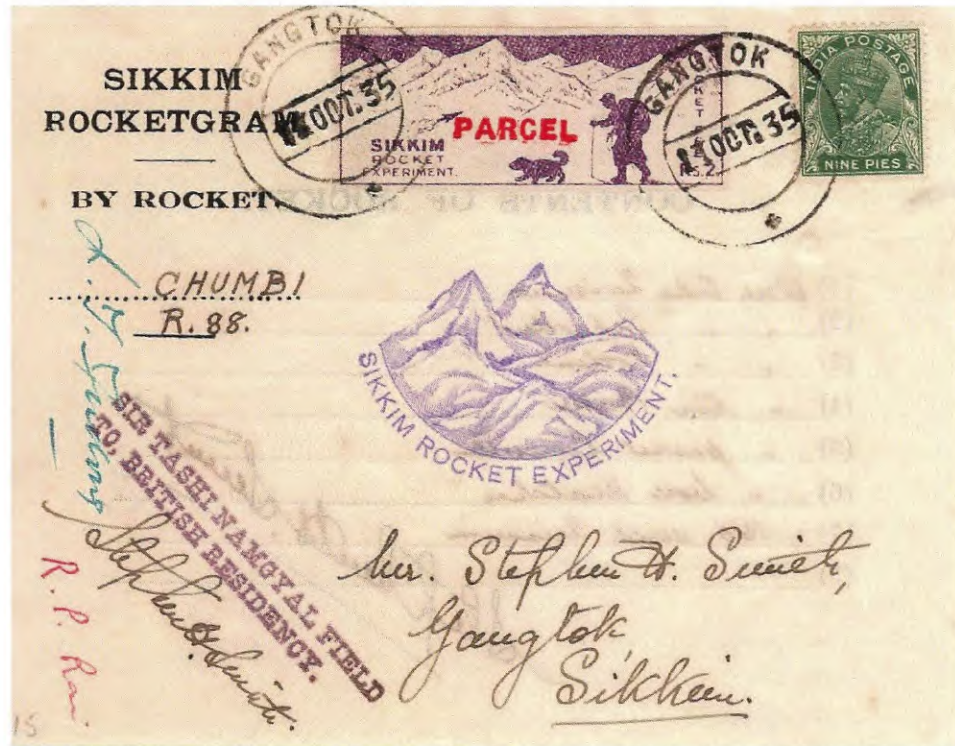 SIKKIM
ROCKETGRAM
BY ROCKET.
CHUMBI
R. 88.
GANGTOK
OCT. 35
PARCEL
SIKKIM
ROCKET
EXPERIMENT.
Rs. 2.
GANGTOK
OCT. 35
INDIA POSTAGE
NINE PIES
SIKKIM ROCKET EXPERIMENT.
SIR TASHI NAMGYAL FIELD
TO, BRITISH RESIDENCY.
Stephen H. Smith.
R. P. Rai
Mr. Stephen H. Smith,
Gangtok,
Sikkim.
15